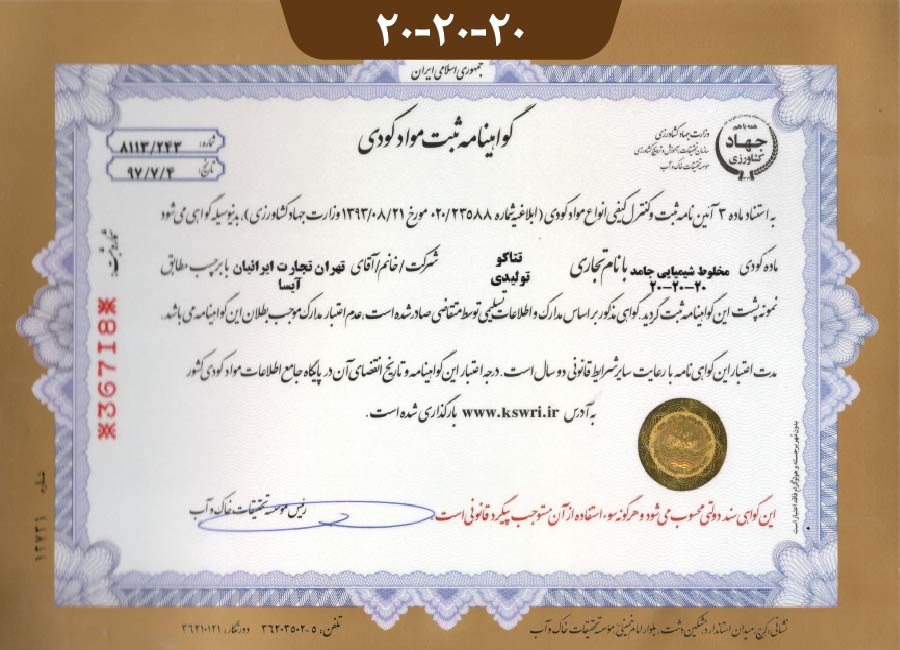 ۲۰-۲۰-۲۰
جمهوری اسلامی ایران
گواهینامه ثبت مواد کودی
همه با هم
جهاد
کشاورزی
وزارت جهاد کشاورزی
سازمان تحقیقات، آموزش و ترویج کشاورزی
موسسه تحقیقات خاک و آب
شماره: ۸۱۱۳/۲۴۳
تاریخ: ۹۷/۷/۴
به استناد ماده ۳ آئین نامه ثبت و کنترل کیفی انواع مواد کودی (ابلاغیه شماره ۰۲۰/۲۳۵۸۸ مورخ ۱۳۹۳/۰۸/۲۱ وزارت جهاد کشاورزی)، بدینوسیله گواهی می شود
ماده کودی مخلوط شیمیایی جامد ۲۰-۲۰-۲۰ با نام تجاری تتاکو تولیدی شرکت / خانم / آقای تهران تجارت ایرانیان آیسا با برچسب مطابق
نمونه پشت این گواهینامه ثبت گردید. گواهی مذکور بر اساس مدارک و اطلاعات تسلیمی توسط متقاضی صادر شده است، عدم اعتبار مدارک موجب بطلان این گواهینامه می باشد.
مدت اعتبار این گواهی نامه با رعایت سایر شرایط قانونی دو سال است. درجه اعتبار این گواهینامه و تاریخ انقضای آن در پایگاه جامع اطلاعات مواد کودی کشور
به آدرس www.kswri.ir بارگذاری شده است.
شماره ثبت:
*36718*
رئیس موسسه تحقیقات خاک و آب
این گواهی سند دولتی محسوب می شود و هرگونه سوء استفاده از آن مستوجب پیگرد قانونی است.
بدون مهر برجسته و هولوگرام فاقد اعتبار است
شماره
۱۲۷۳۱
نشانی: کرج، میدان استاندارد، مشکین دشت، بلوار امام خمینی، موسسه تحقیقات خاک و آب
تلفن: ۵-۳۶۲۰۳۵۰۲ دورنگار: ۳۶۲۱۰۱۲۱